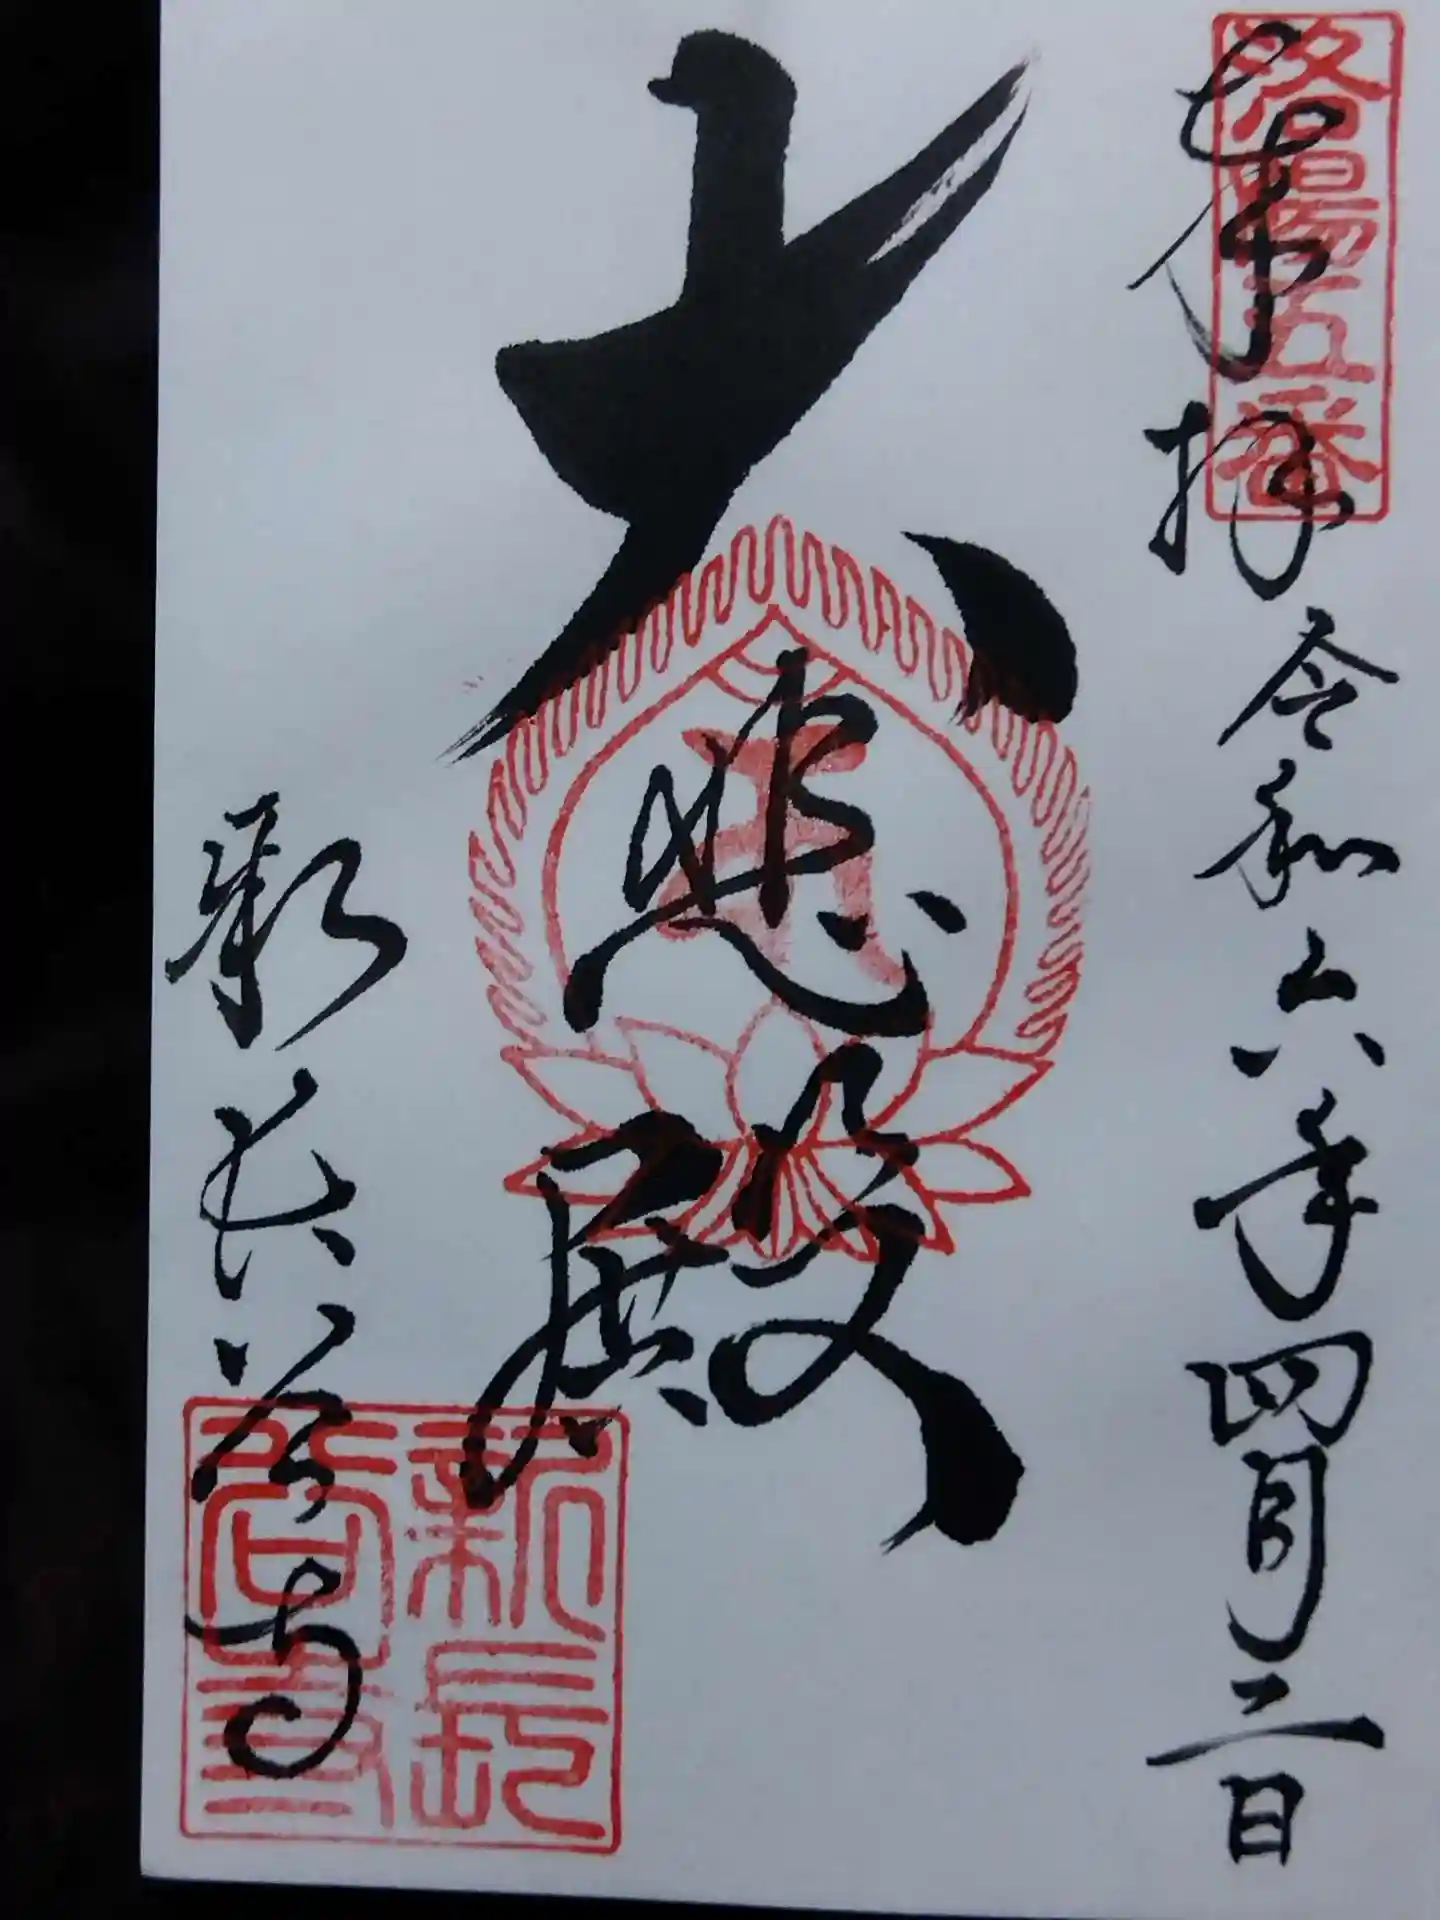 奉拝
令和六年四月二日
洛陽五番
大悲殿
新長谷寺
新長谷寺